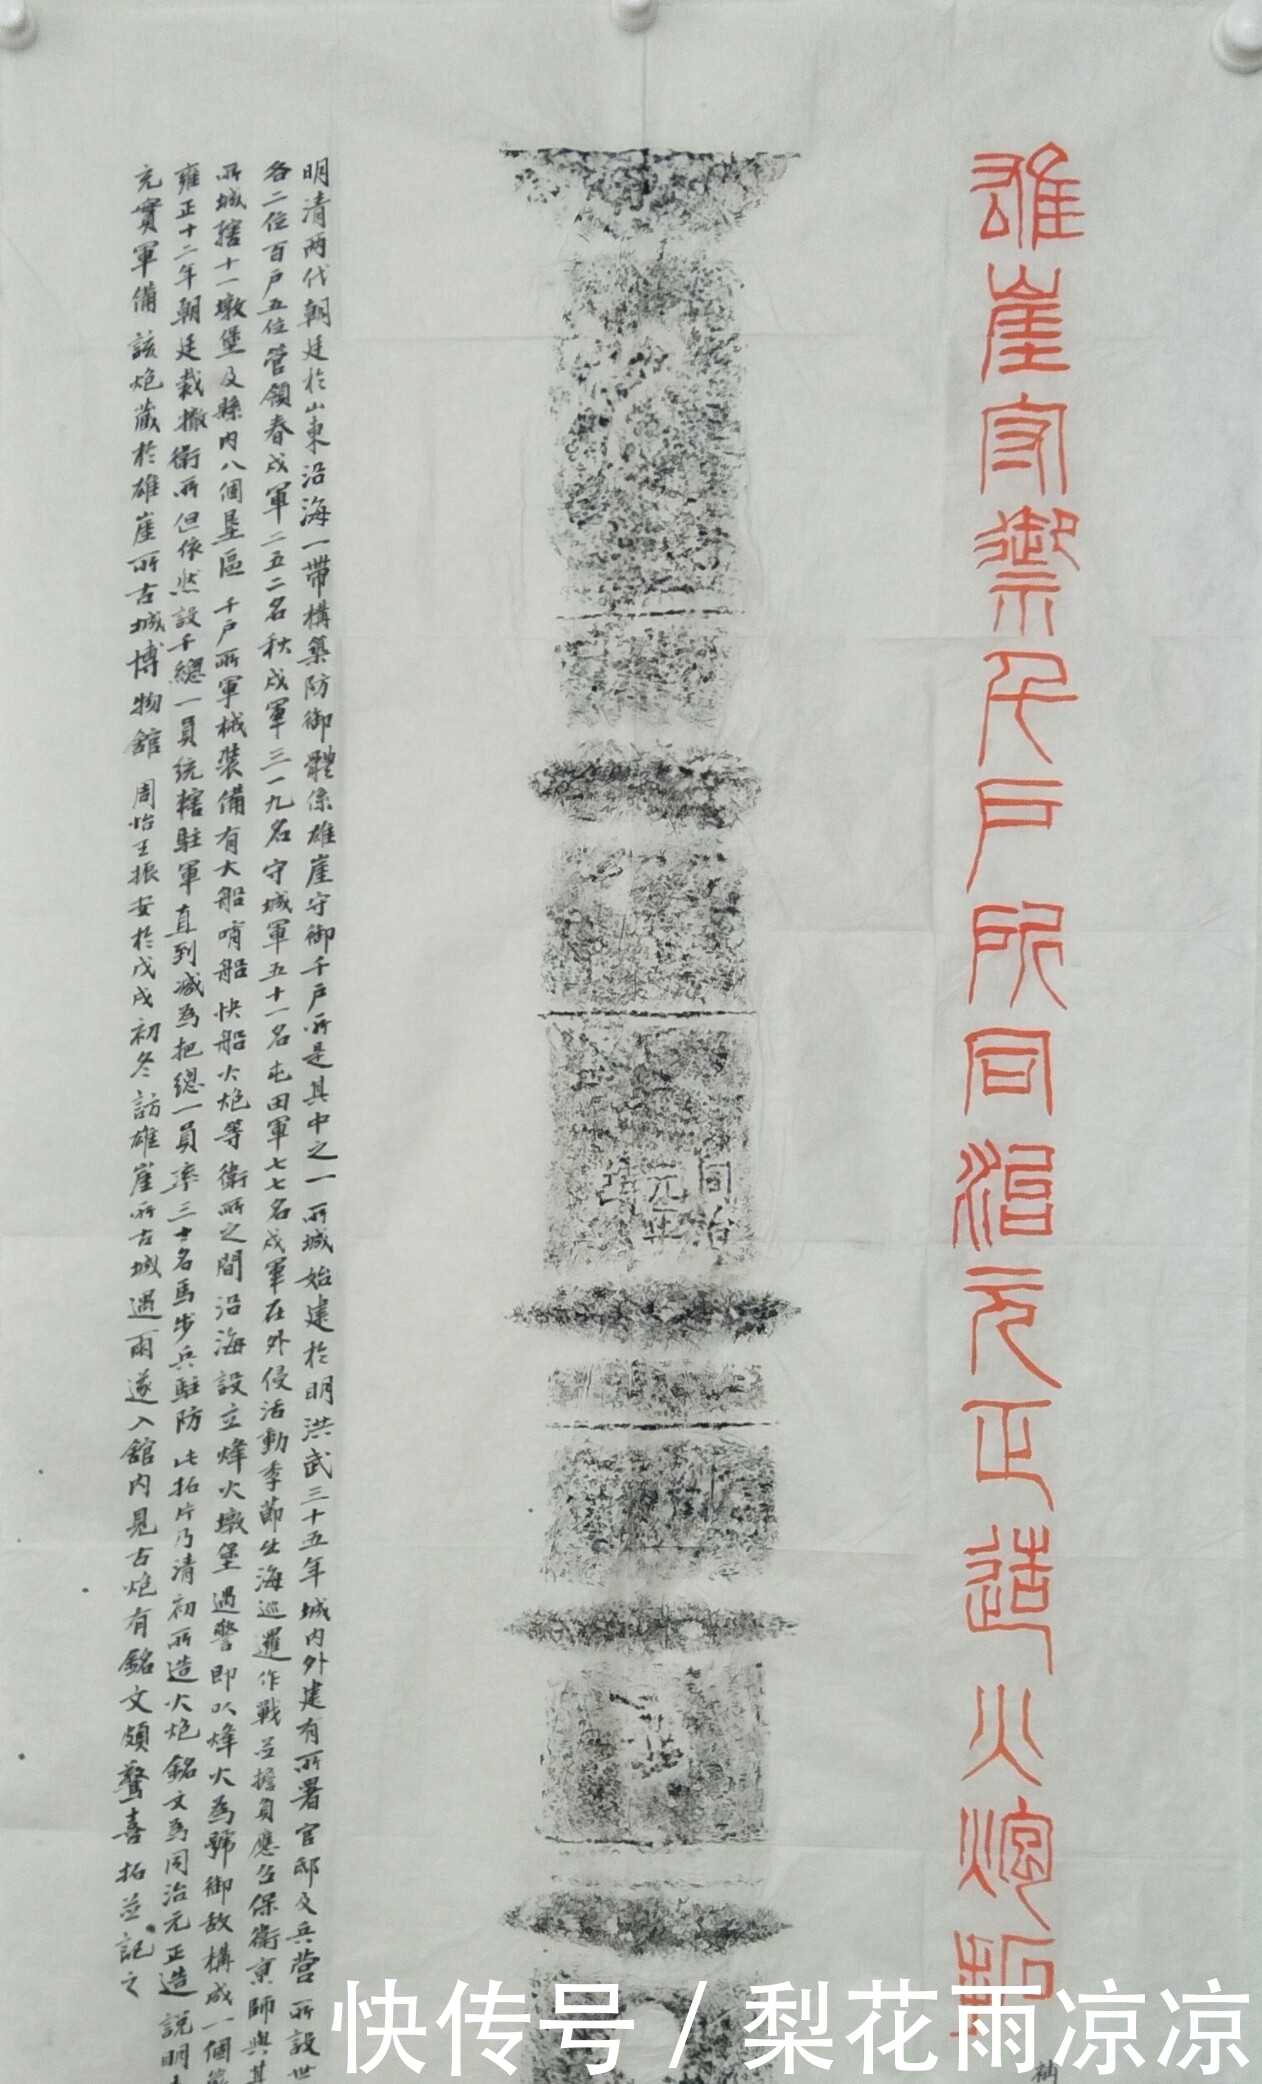 雄崖守禦千戶所同治元正造火炮拓
同治
元正
造
明清两代朝廷於山東沿海一帶構築防御體係雄崖守御千戶所是其中之一所城始建於明洪武三十五年城内外建有所署官邸及兵营所設世
各二位百戶五位管領春戍軍二五二名秋戍軍三一九名守城軍五十一名屯田軍七七名戍軍在外侵活動季節出海巡邏作戰并擔負應召保衛京師與其
所城轄十一墩堡及縣内八個垦區千戶所軍械裝備有大船哨船快船火炮等衛所之間沿海設立烽火墩堡遇警即以烽火為號御敌構成一個
雍正十二年朝廷裁撤衛所但依然設千總一員统轄駐軍直到减為把總一員率三十名馬步兵駐防此拓片乃清初所造火炮銘文為同治元正造説明
充實軍備該炮藏於雄崖所古城博物館周怡王振安於戊戌初冬訪雄崖所古城遇雨遂入館内見古炮有銘文頗驚喜拓并記之
快传号 / 梨花雨凉凉